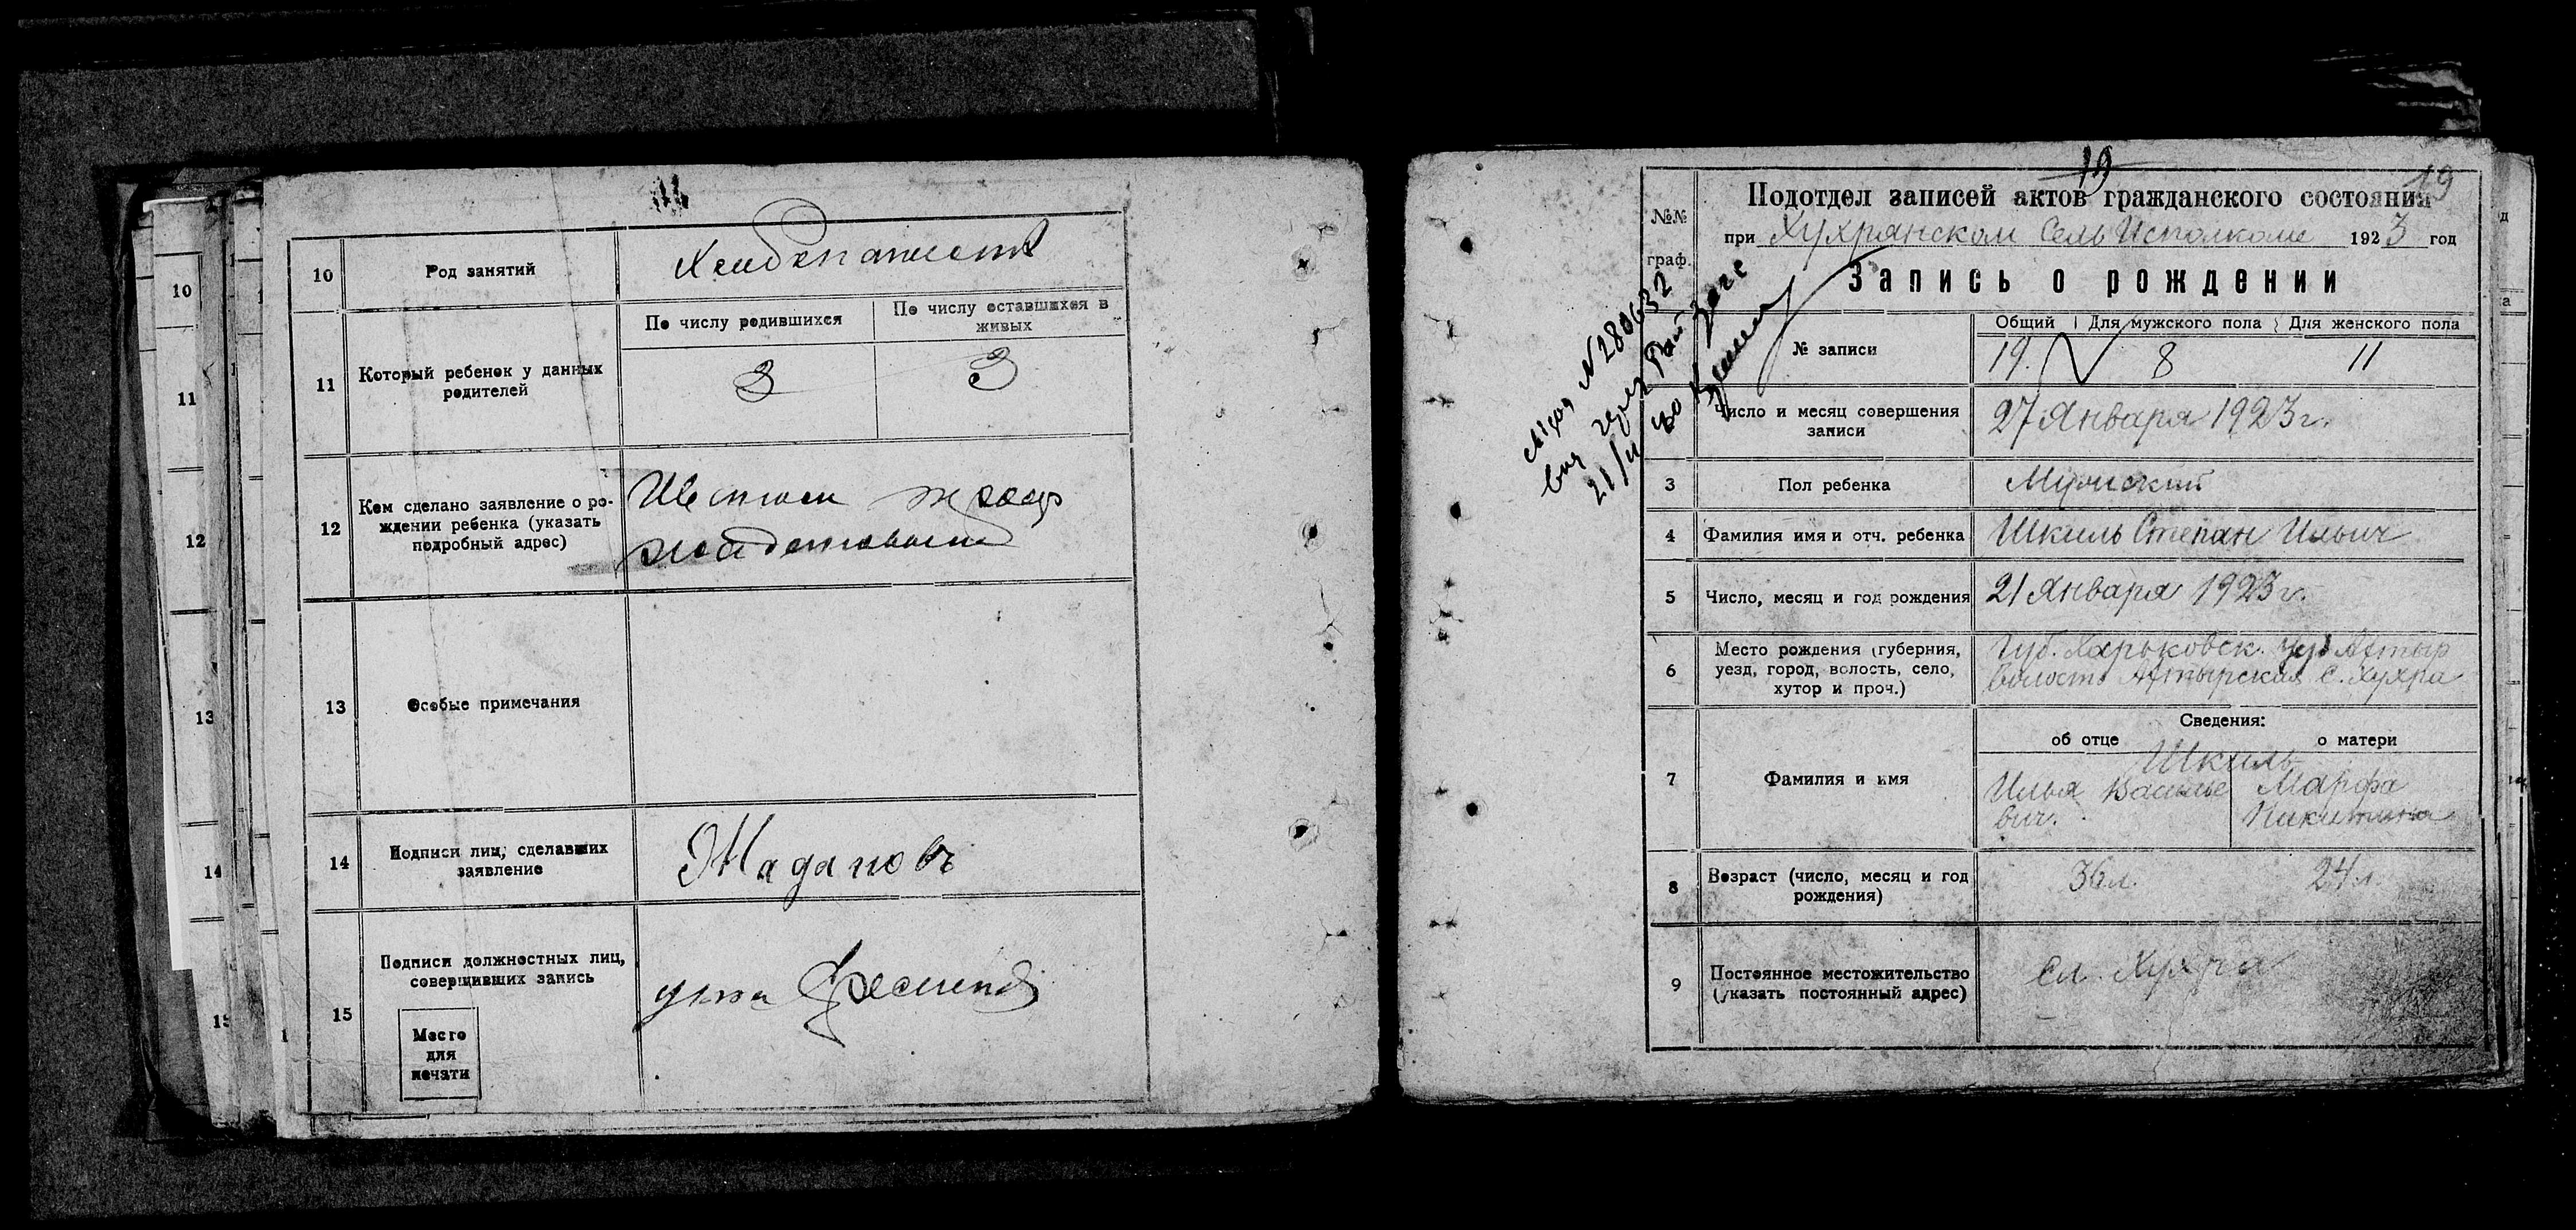 10
Род занятий
Хлебопашест
11
Который ребенок у данных
родителей
По числу родившихся
По числу оставшихся в
живых
3
3
12
Кем сделано заявление о ро-
ждении ребенка (указать
подробный адрес)
13
Особые примечания
14
Подписи лиц, сделавших
заявление
Жадановъ
15
Подписи должностных лиц,
совершивших запись
Место
для
печати
10
11
12
13
14
15
19
19
№№
граф.
Подотдел записей актов гражданского состояния
при Хухрянском СельИсполкоме 1923 год
Запись о рождении
№ 280632
21/
№ записи
Общий Для мужского пола Для женского пола
19. 8 11
Число и месяц совершения
записи
27 Января 1923 г.
3
Пол ребенка
Мужский
4
Фамилия имя и отч. ребенка
Шкиль Степан Ильич
5
Число, месяц и год рождения
21 Января 1923 г.
6
Место рождения (губерния,
уезд, город, волость, село,
хутор и проч.)
Губ. Харьковск. уез Ахтыр
Волость Ахтырская с. Хухра
7
Фамилия и имя
Сведения:
об отце
о матери
Шкиль
Илья Василье
вич.
Марфа
Никитина
8
Возраст (число, месяц и год
рождения)
36 л.
24 л.
9
Постоянное местожительство
(указать постоянный адрес)
Сл. Хухра